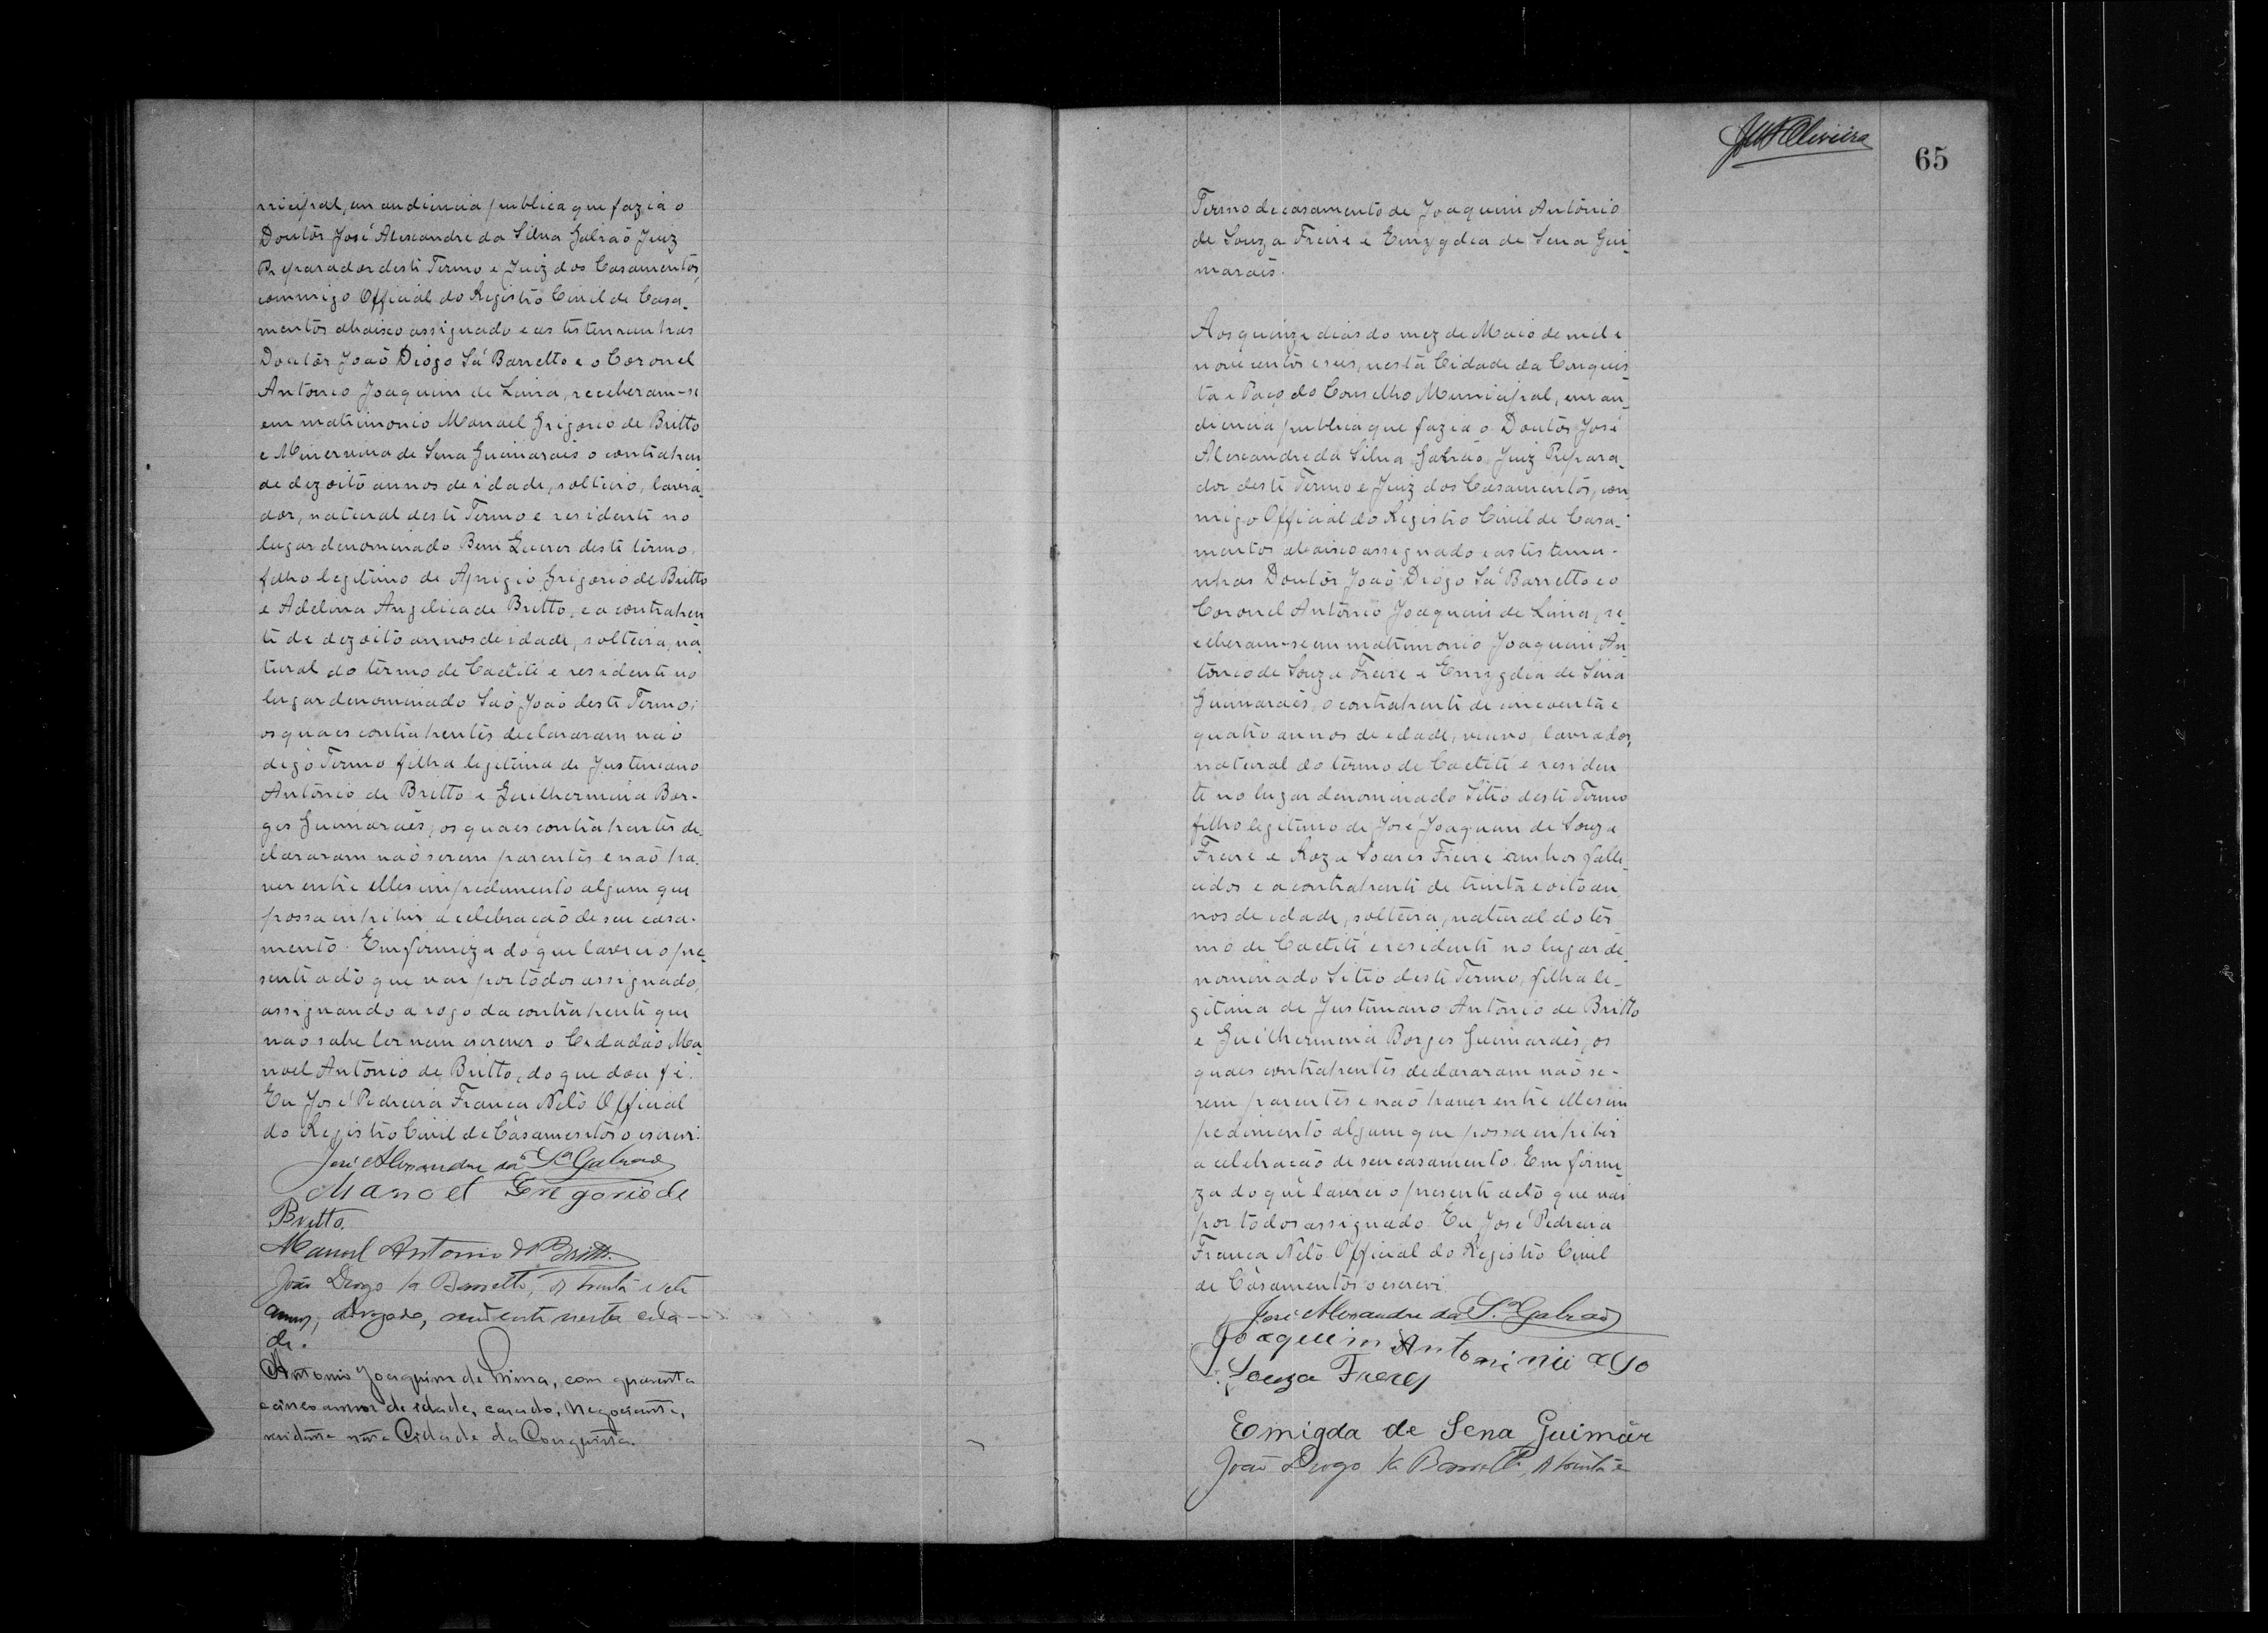 nicipal, em audiencia publica que fazia o
Doutôr José Alexandre da Silva Galvaõ Juiz
Preparador deste Termo e Juiz dos Casamentos,
commigo Official do Registro Civil de Casa-
mentos abaixo assignado e as testemunhas
Doutôr Joaõ Diôgo Sá Barretto e o Coronel
Antonio Joaquim de Lima, receberam-se
em matrimonio Manoel Grigorio de Britto
e Minervina de Sena Guimaraẽs o contrahen
de dezoito annos de idade, solteiro, lavra-
dor, natural deste Termo e residente no
lugar denominado Bem Querer deste termo,
filho legitimo de Aprigio Grigorio de Britto
e Adelina Angelica de Britto, e a contrahen
te de dezoito annos de idade, solteira, na-
tural do termo de Caetité e residente no
lugar denominado Saõ Joaõ deste Termo;
os quaes contrahentes declararam naõ
digo Termo filha legitima de Justiniano
Antônio de Britto e Guilhermina Bor-
ges Guimaraẽs, os quaes contrahentes de-
clararam naõ serem parentes e naõ ha-
ver entre elles impedimento algum que
possa inhibir a celebracaõ de seu casa-
mento. Em firmeza do que lavrei o pre-
sente acto que vai por todos assignado,
assignando a rogo da contrahente que
naõ sabe ler nem escrever o Cidadaõ Ma-
noel Antonio de Britto, do que dou fé.
Eu José Pedreira Franca Netô Official
do Registro Civil de Casamentos o escrevi.
José Alexandre da Sª Galvaõ
Manoel Gregorio de
Britto
Manoel Antonio de Britto
João Diogo Sá Barretto, de trinta e sete
annos, advogado, residente nesta cida-
de.
Antonio Joaquim de Lima, com quarenta
e cinco annos de idade, casado, negociante,
residente nesta Cidade da Conquista.
65
Termo de casamento de Joaquim Antônio
de Souza Freire e Emygdia de Sena Gui-
maraẽs.
Aos quinze dias do mez de Maio de mil e
nove centos e seis, nesta Cidade da Conquis-
ta e Paço do Conselho Municipal, em au-
diencia publica que fazia o Doutôr José
Alexandre da Silva Galvaõ Juiz Prepara-
dor deste Termo e Juiz dos Casamentos, com
migo Official do Registro Civil de Casa-
mentos abaixo assignado e as testemu-
nhas Doutôr Joaõ Diôgo Sá Barretto e o
Coronel Antônio Joaquim de Lima, re-
ceberam-se em matrimonio Joaquim An-
tônio de Souza Freire e Emygdia de Sena
Guimaraẽs, o contrahente de cincoenta e
quatro annos de edade, viuvo, lavrador,
natural do termo de Caetité e residen
te no lugar denominado Sitio deste Termo
filho legitimo de José Joaquim de Souza
Freire e Roza Soares Freire ambos falle
cidos e a contrahente de trinta e oito an
nos de idade, solteira, natural do ter
mo de Caetité e residente no lugar de-
nominado Sitio deste Termo, filha le-
gitima de Justiniano Antônio de Britto
e Guilhermina Borges Guimaraẽs, os
quaes contrahentes declararam naõ se-
rem parentes e naõ haver entre elles im
pedimento algum que possa inhibir
a celebracaõ de seu casamento. Em firme-
za do que lavrei o presente acto que vai
por todos assignado. Eu José Pedreira
Franca Netô Official do Registro Civil
de Casamentos o escrevi
José Alexandre da Sª Galvaõ
Joaquim
Souza
Emigda de Sena Guimãr
João Diogo Sá Barretto, de trinta e